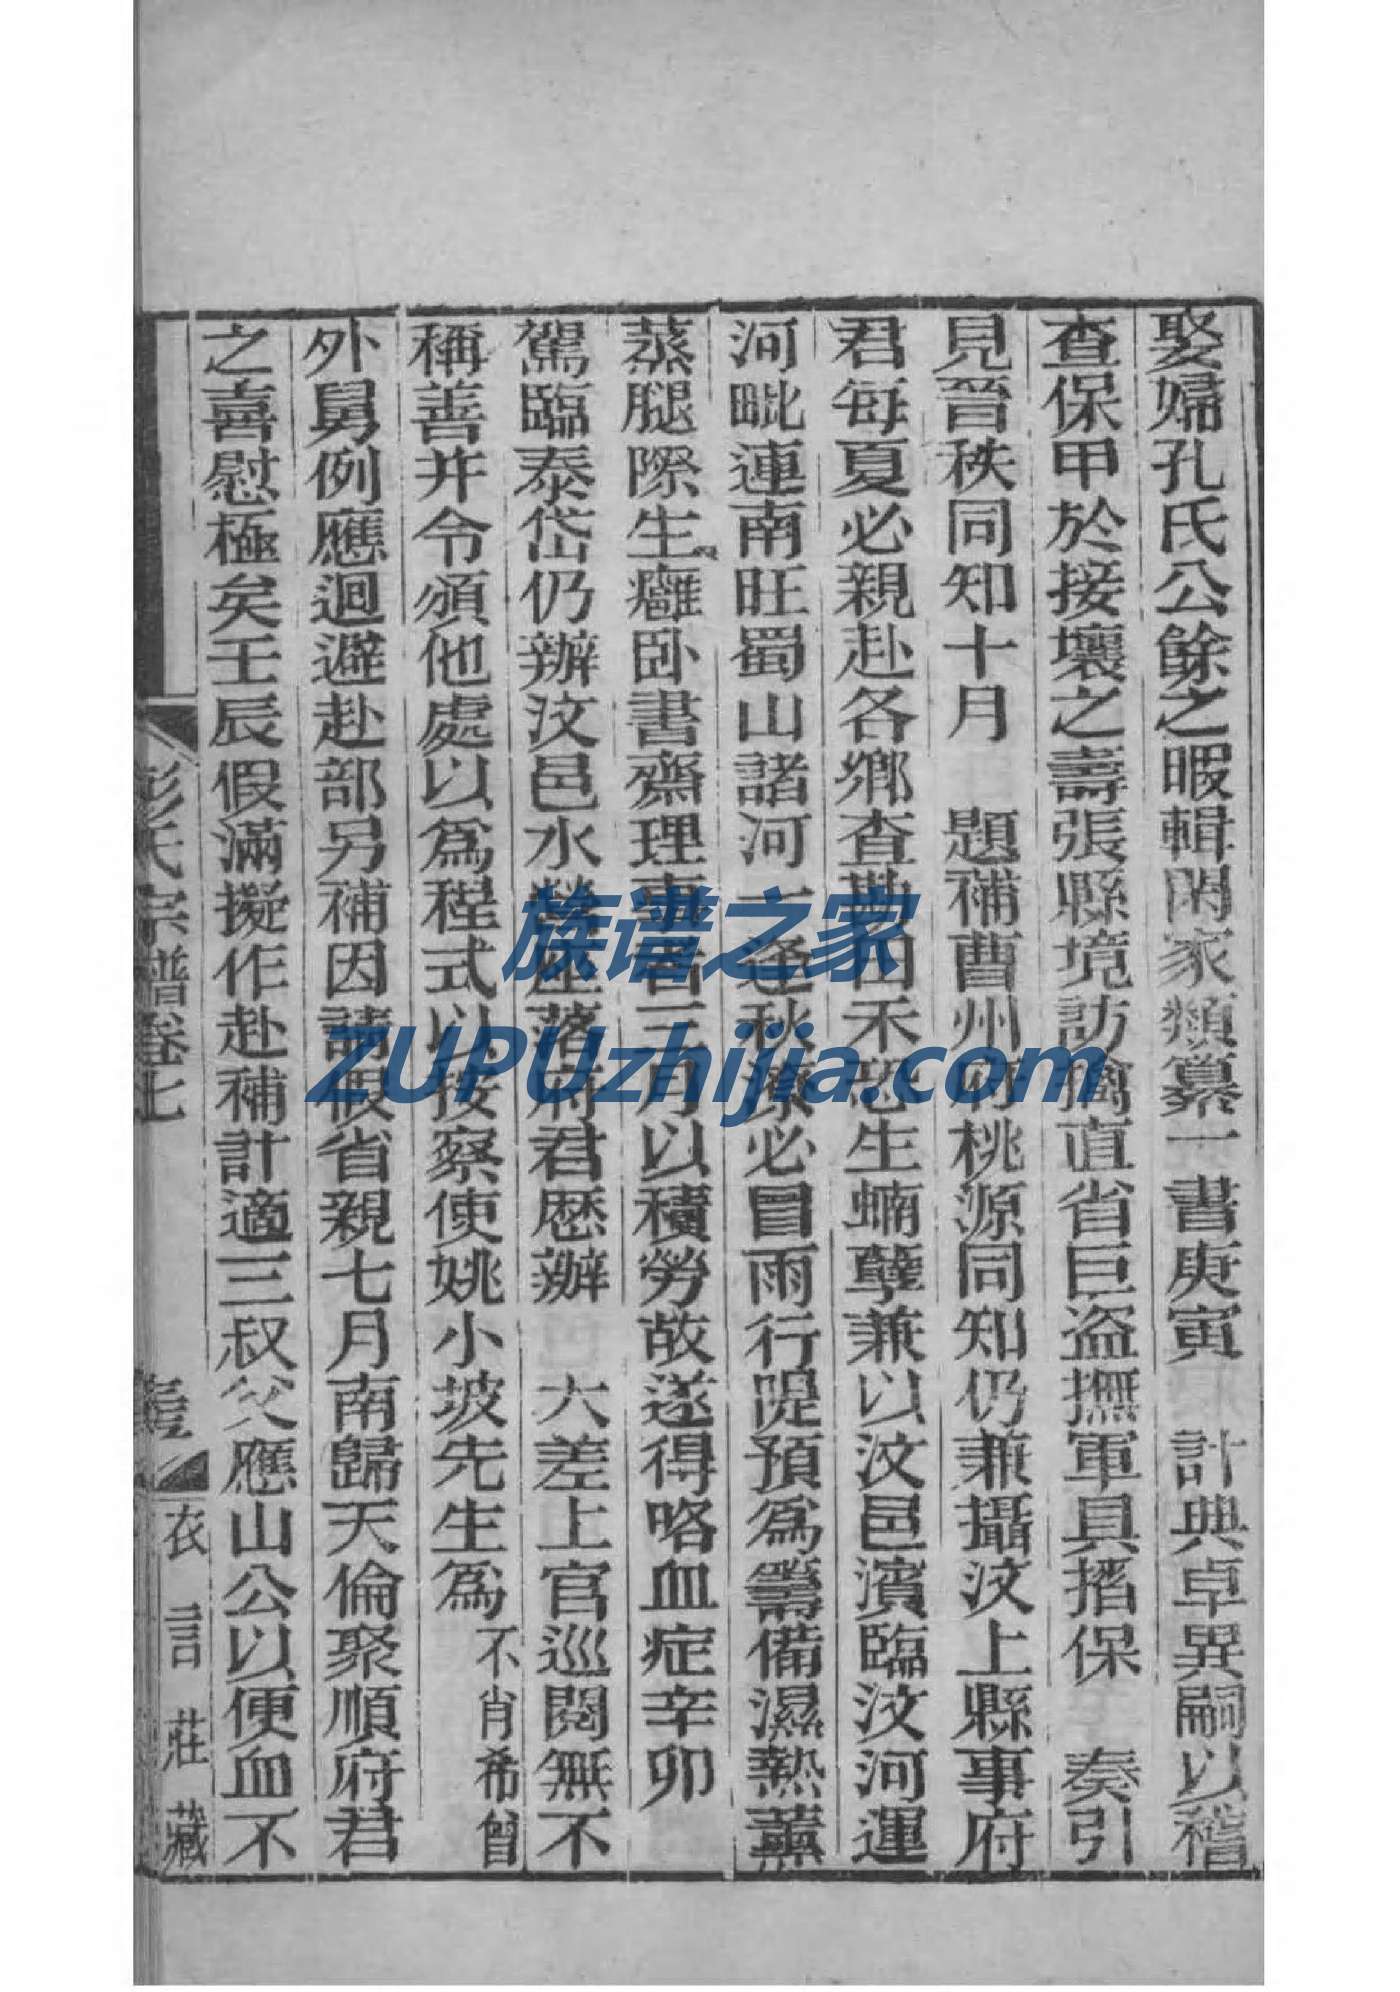 娶婦孔氏公餘之暇輯閑家類纂一書庚寅 計典卓異嗣以稽
查保甲於接壤之壽張縣境訪擒直省巨盜撫軍具摺保 奏引
見晉秩同知十月 題補曹州府桃源同知仍兼攝汶上縣事府
君每夏必親赴各鄉查勘田禾恐生蝻孽兼以汶邑濱臨汶河運
河毗連南旺蜀山諸河一逢秋潦必冒雨行隄預為籌備濕熱薰
蒸腿際生癰臥書齋理事者三月以積勞故遂得咯血症辛卯
駕臨泰岱仍辦汶邑水營座落府君歷辦 大差上官巡閱無不
稱善并令頒他處以為程式以按察使姚小坡先生為不肖希曾
外舅例應迴避赴部另補因請假省親七月南歸天倫聚順府君
之喜慰極矣壬辰假滿擬作赴補計適三叔父應山公以便血不
彭氏宗譜卷七
衣言莊藏
族谱之家
ZUPUzhijia.com